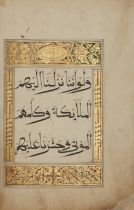 ولو اننا نزلنا اليهم
الملايكة وكلمهم
الموتى وحشرنا عليهم